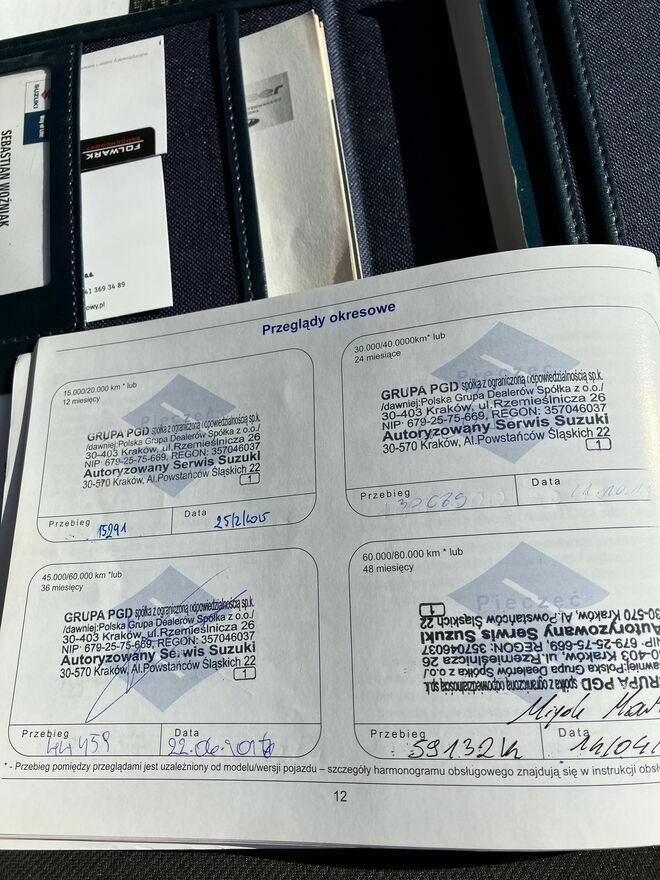 SUZUKI
Way of Life!
SEBASTIAN WOŹNIAK
FOLWARK
s.a.
41 369 34 89
owy.pl
Jeep
Przeglądy okresowe
15.000/20.000 km * lub
12 miesięcy
Pieczęć
GRUPA PGD spółka z ograniczoną odpowiedzialnością sp.k.
/dawniej:Polska Grupa Dealerów Spółka z o.o./
30-403 Kraków, ul.Rzemieślnicza 26
NIP: 679-25-75-669, REGON: 357046037
Autoryzowany Serwis Suzuki
30-570 Kraków, Al.Powstańców Śląskich 22
1
Przebieg
15291
Data
25/2/2015
30.000/40.0000km* lub
24 miesiące
Pieczęć
GRUPA PGD spółka z ograniczoną odpowiedzialnością sp.k.
/dawniej:Polska Grupa Dealerów Spółka z o.o./
30-403 Kraków, ul.Rzemieślnicza 26
NIP: 679-25-75-669, REGON: 357046037
Autoryzowany Serwis Suzuki
30-570 Kraków, Al.Powstańców Śląskich 22
1
Przebieg
Data
45.000/60.000 km *lub
36 miesięcy
GRUPA PGD spółka z ograniczoną odpowiedzialnością sp.k.
/dawniej:Polska Grupa Dealerów Spółka z o.o./
30-403 Kraków, ul.Rzemieślnicza 26
NIP: 679-25-75-669, REGON: 357046037
Autoryzowany Serwis Suzuki
30-570 Kraków, Al.Powstańców Śląskich 22
1
Przebieg
44459
Data
22.06.2017
60.000/80.000 km* lub
48 miesięcy
Pieczęć
GRUPA PGD spółka z ograniczoną odpowiedzialnością sp.k.
dawniej:Polska Grupa Dealerów Spółka z o.o./
30-403 Kraków, ul.Rzemieślnicza 26
NIP: 679-25-75-669, REGON: 357046037
Autoryzowany Serwis Suzuki
30-570 Kraków, Al.Powstańców Śląskich
1
Przebieg
59132k
Data
14/04/
* - Przebieg pomiędzy przeglądami jest uzależniony od modelu/wersji pojazdu – szczegóły harmonogramu obsługowego znajdują się w instrukcji obsł
12